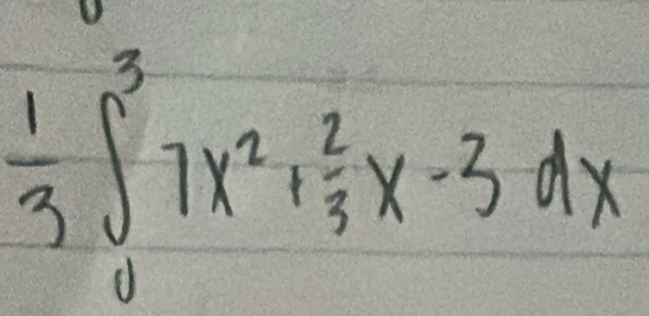 1/3 ∫₀³ 7x² + 2/3 x - 3 dx